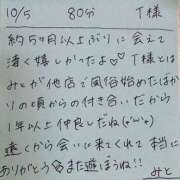 10/5 80分 T様
約5ヶ月以上ぶりに会えて
凄く嬉しかったよ♡♡T様とは
みとが他店で風俗始めたばか
りの頃からの付き合いだから
1年以上仲良しだね(>ω<)
遠くから会いに来てくれて
ありがとう また遊ぼうね!!みと